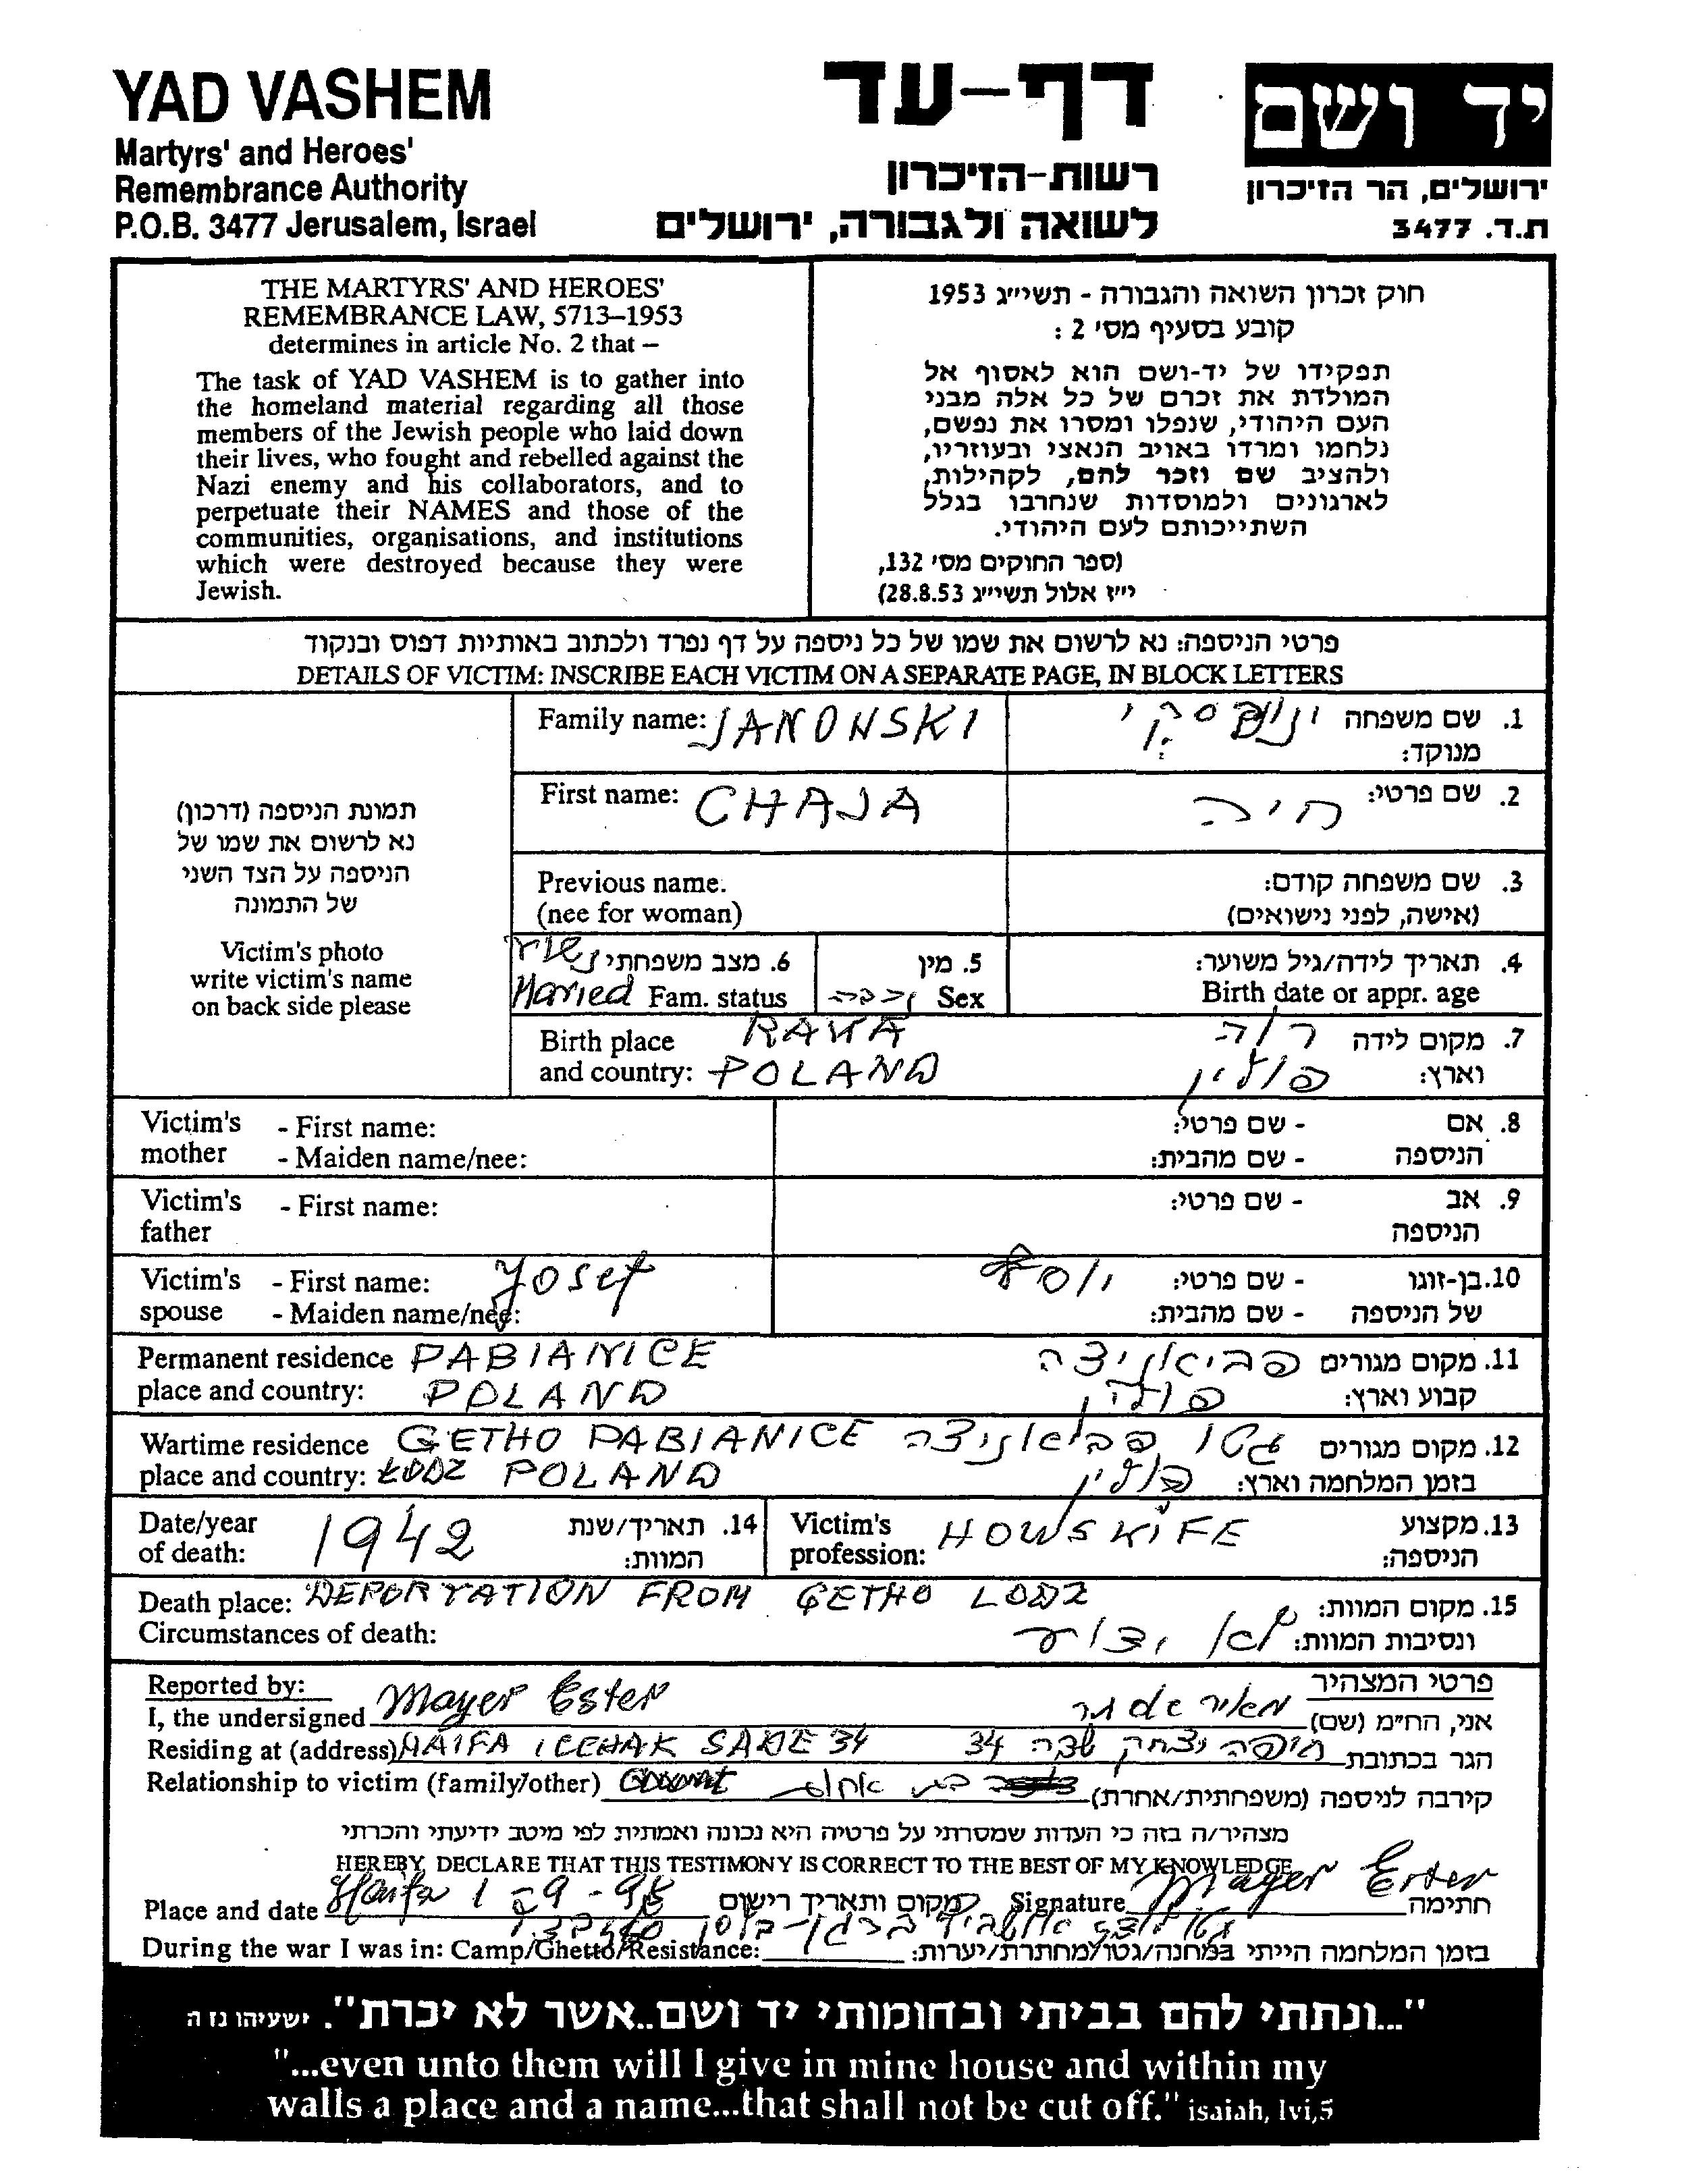 YAD VASHEM
Martyrs' and Heroes'
Remembrance Authority
P.O.B. 3477 Jerusalem, Israel
דף-עד
רשות-הזיכרון
לשואה ולגבורה, ירושלים
יד ושם
ירושלים, הר הזיכרון
ת.ד. 3477
THE MARTYRS' AND HEROES'
REMEMBRANCE LAW, 5713–1953
determines in article No. 2 that –
The task of YAD VASHEM is to gather into
the homeland material regarding all those
members of the Jewish people who laid down
their lives, who fought and rebelled against the
Nazi enemy and his collaborators, and to
perpetuate their NAMES and those of the
communities, organisations, and institutions
which were destroyed because they were
Jewish.
חוק זכרון השואה והגבורה - תשי״ג 1953
קובע בסעיף מס׳ 2 :
תפקידו של יד-ושם הוא לאסוף אל
המולדת את זכרם של כל אלה מבני
העם היהודי, שנפלו ומסרו את נפשם,
נלחמו ומרדו באויב הנאצי ובעוזריו,
ולהציב שם וזכר להם, לקהילות,
לארגונים ולמוסדות שנחרבו בגלל
השתייכותם לעם היהודי.
(ספר החוקים מס׳ 132,
י״ז אלול תשי״ג 28.8.53)
פרטי הניספה: נא לרשום את שמו של כל ניספה על דף נפרד ולכתוב באותיות דפוס ובנקוד
DETAILS OF VICTIM: INSCRIBE EACH VICTIM ON A SEPARATE PAGE, IN BLOCK LETTERS
תמונת הניספה (דרכון)
נא לרשום את שמו של
הניספה על הצד השני
של התמונה
Victim's photo
write victim's name
on back side please
Family name: JANOWSKI
1. שם משפחה ינובסקי
מנוקד:
First name: CHAJA
2. שם פרטי: חיה
Previous name.
(nee for woman)
3. שם משפחה קודם:
(אישה, לפני נישואים)
6. מצב משפחתי
Maried Fam. status
5. מין
Sex נקבה
4. תאריך לידה/גיל משוער:
Birth date or appr. age
Birth place RAWA
and country: POLAND
7. מקום לידה רוה
וארץ: פולין
Victim's - First name:
mother - Maiden name/nee:
8. אם - שם פרטי:
הניספה - שם מהבית:
Victim's - First name:
father
9. אב - שם פרטי:
הניספה
Victim's - First name: Yosef
spouse - Maiden name/nee:
10. בן-זוגו - שם פרטי: יוסף
של הניספה - שם מהבית:
Permanent residence PABIANICE
place and country: POLAND
11. מקום מגורים פביאניצה
קבוע וארץ: פולין
Wartime residence GETHO PABIANICE
place and country: ŁODZ POLAND
12. מקום מגורים גטו פביאניצה
בזמן המלחמה וארץ: פולין
Date/year
of death: 1942
14. תאריך/שנת
המוות:
Victim's
profession: HOWSKIFE
13. מקצוע
הניספה:
Death place: DEPORTATION FROM GETHO LODZ
Circumstances of death:
15. מקום המוות:
ונסיבות המוות: לא ידוע
Reported by:
I, the undersigned Mayer Ester
Residing at (address) HAIFA ICCHAK SADE 34
Relationship to victim (family/other)
פרטי המצהיר
אני, הח״מ (שם) מאיר אסתר
הגר בכתובת חיפה יצחק שדה 34
קירבה לניספה (משפחתית/אחרת) בת אחות
מצהיר/ה בזה כי העדות שמסרתי על פרטיה היא נכונה ואמתית לפי מיטב ידיעתי והכרתי
HEREBY DECLARE THAT THIS TESTIMONY IS CORRECT TO THE BEST OF MY KNOWLEDGE
Place and date Haifa 1-9-98 מקום ותאריך רישום Signature Mayer Ester חתימה
During the war I was in: Camp/Ghetto/Resistance: בזמן המלחמה הייתי במחנה/גטו/מחתרת/יערות:
"...ונתתי להם בביתי ובחומותי יד ושם..אשר לא יכרת". ישעיהו נז ה
"...even unto them will I give in mine house and within my
walls a place and a name...that shall not be cut off." isaiah, lvi,5